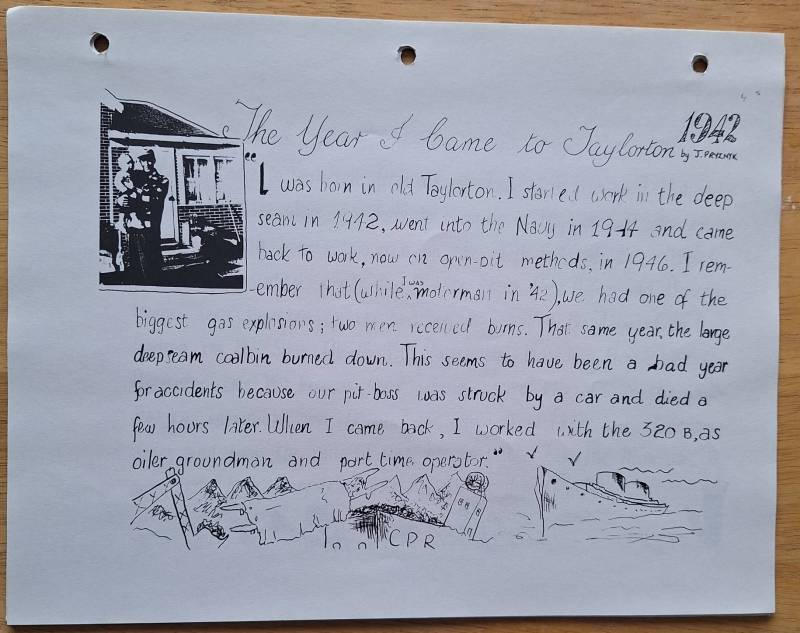 The Year I Came to Taylorton 1942
by J. PRYZNYK
"I was born in old Taylorton. I started work in the deep
seam in 1942, went into the Navy in 1944 and came
back to work, now on open-pit methods, in 1946. I rem-
ember that (while I was motorman in '42), we had one of the
biggest gas explosions; two men received burns. That same year, the large
deepseam coalbin burned down. This seems to have been a bad year
for accidents because our pit-boss was struck by a car and died a
few hours later. When I came back, I worked with the 320 B, as
oiler groundman and part time operator."
CPR